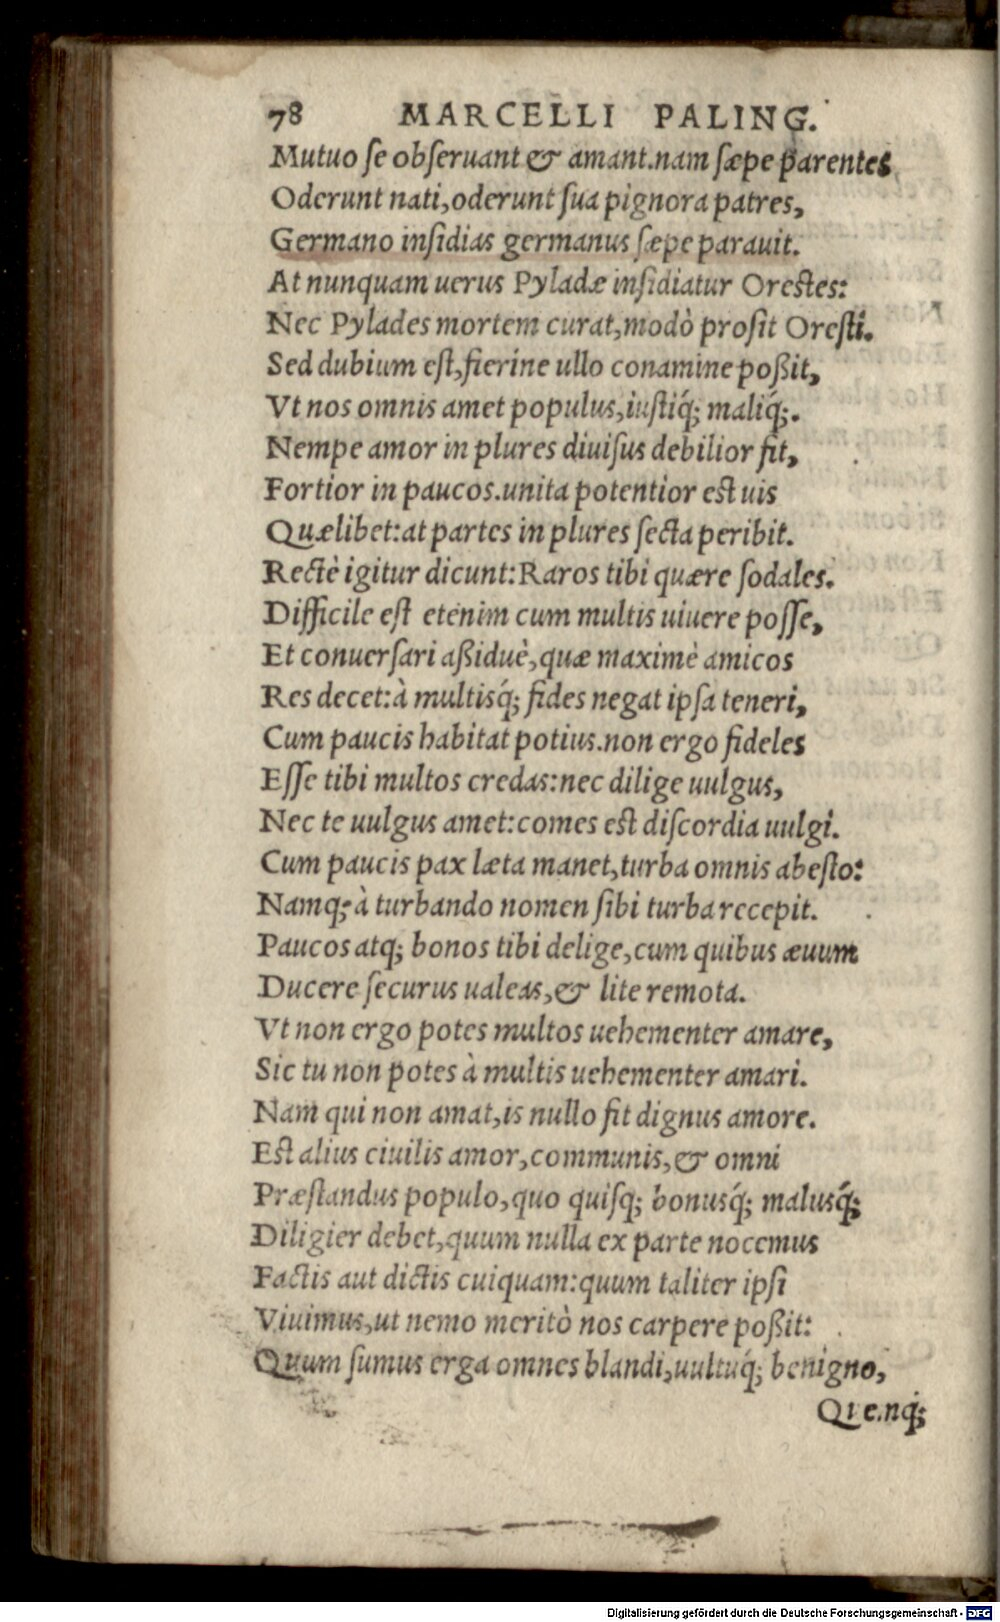 78 MARCELLI PALING.
Mutuo ſe obſeruant & amant.nam ſæpe parentes
Oderunt nati,oderunt ſua pignora patres,
Germano inſidias germanus ſæpe parauit.
At nunquam uerus Pyladæ inſidiatur Oreſtes:
Nec Pylades mortem curat,modò proſit Oreſti.
Sed dubium eſt,fierine ullo conamine poßit,
Vt nos omnis amet populus,iuſtiq́; maliq́;.
Nempe amor in plures diuiſus debilior fit,
Fortior in paucos.unita potentior eſt uis
Quælibet:at partes in plures ſecta peribit.
Rectè igitur dicunt:Raros tibi quære ſodales.
Difficile eſt etenim cum multis uiuere poſſe,
Et conuerſari aßiduè,quæ maximè amicos
Res decet:à multisq́; fides negat ipſa teneri,
Cum paucis habitat potius.non ergo fideles
Eſſe tibi multos credas:nec dilige uulgus,
Nec te uulgus amet:comes eſt diſcordia uulgi.
Cum paucis pax læta manet,turba omnis abeſto:
Namq; à turbando nomen ſibi turba recepit.
Paucos atq; bonos tibi delige,cum quibus æuum
Ducere ſecurus ualeas,& lite remota.
Vt non ergo potes multos uehementer amare,
Sic tu non potes à multis uehementer amari.
Nam qui non amat,is nullo fit dignus amore.
Eſt alius ciuilis amor,communis,& omni
Præſtandus populo,quo quiſq; bonusq́; malusq́;
Diligier debet,quum nulla ex parte nocemus
Factis aut dictis cuiquam:quum taliter ipſi
Viuimus,ut nemo meritò nos carpere poßit:
Quum ſumus erga omnes blandi,uultuq́; benigno,
Quenq́;
Digitalisierung gefördert durch die Deutsche Forschungsgemeinschaft - DFG